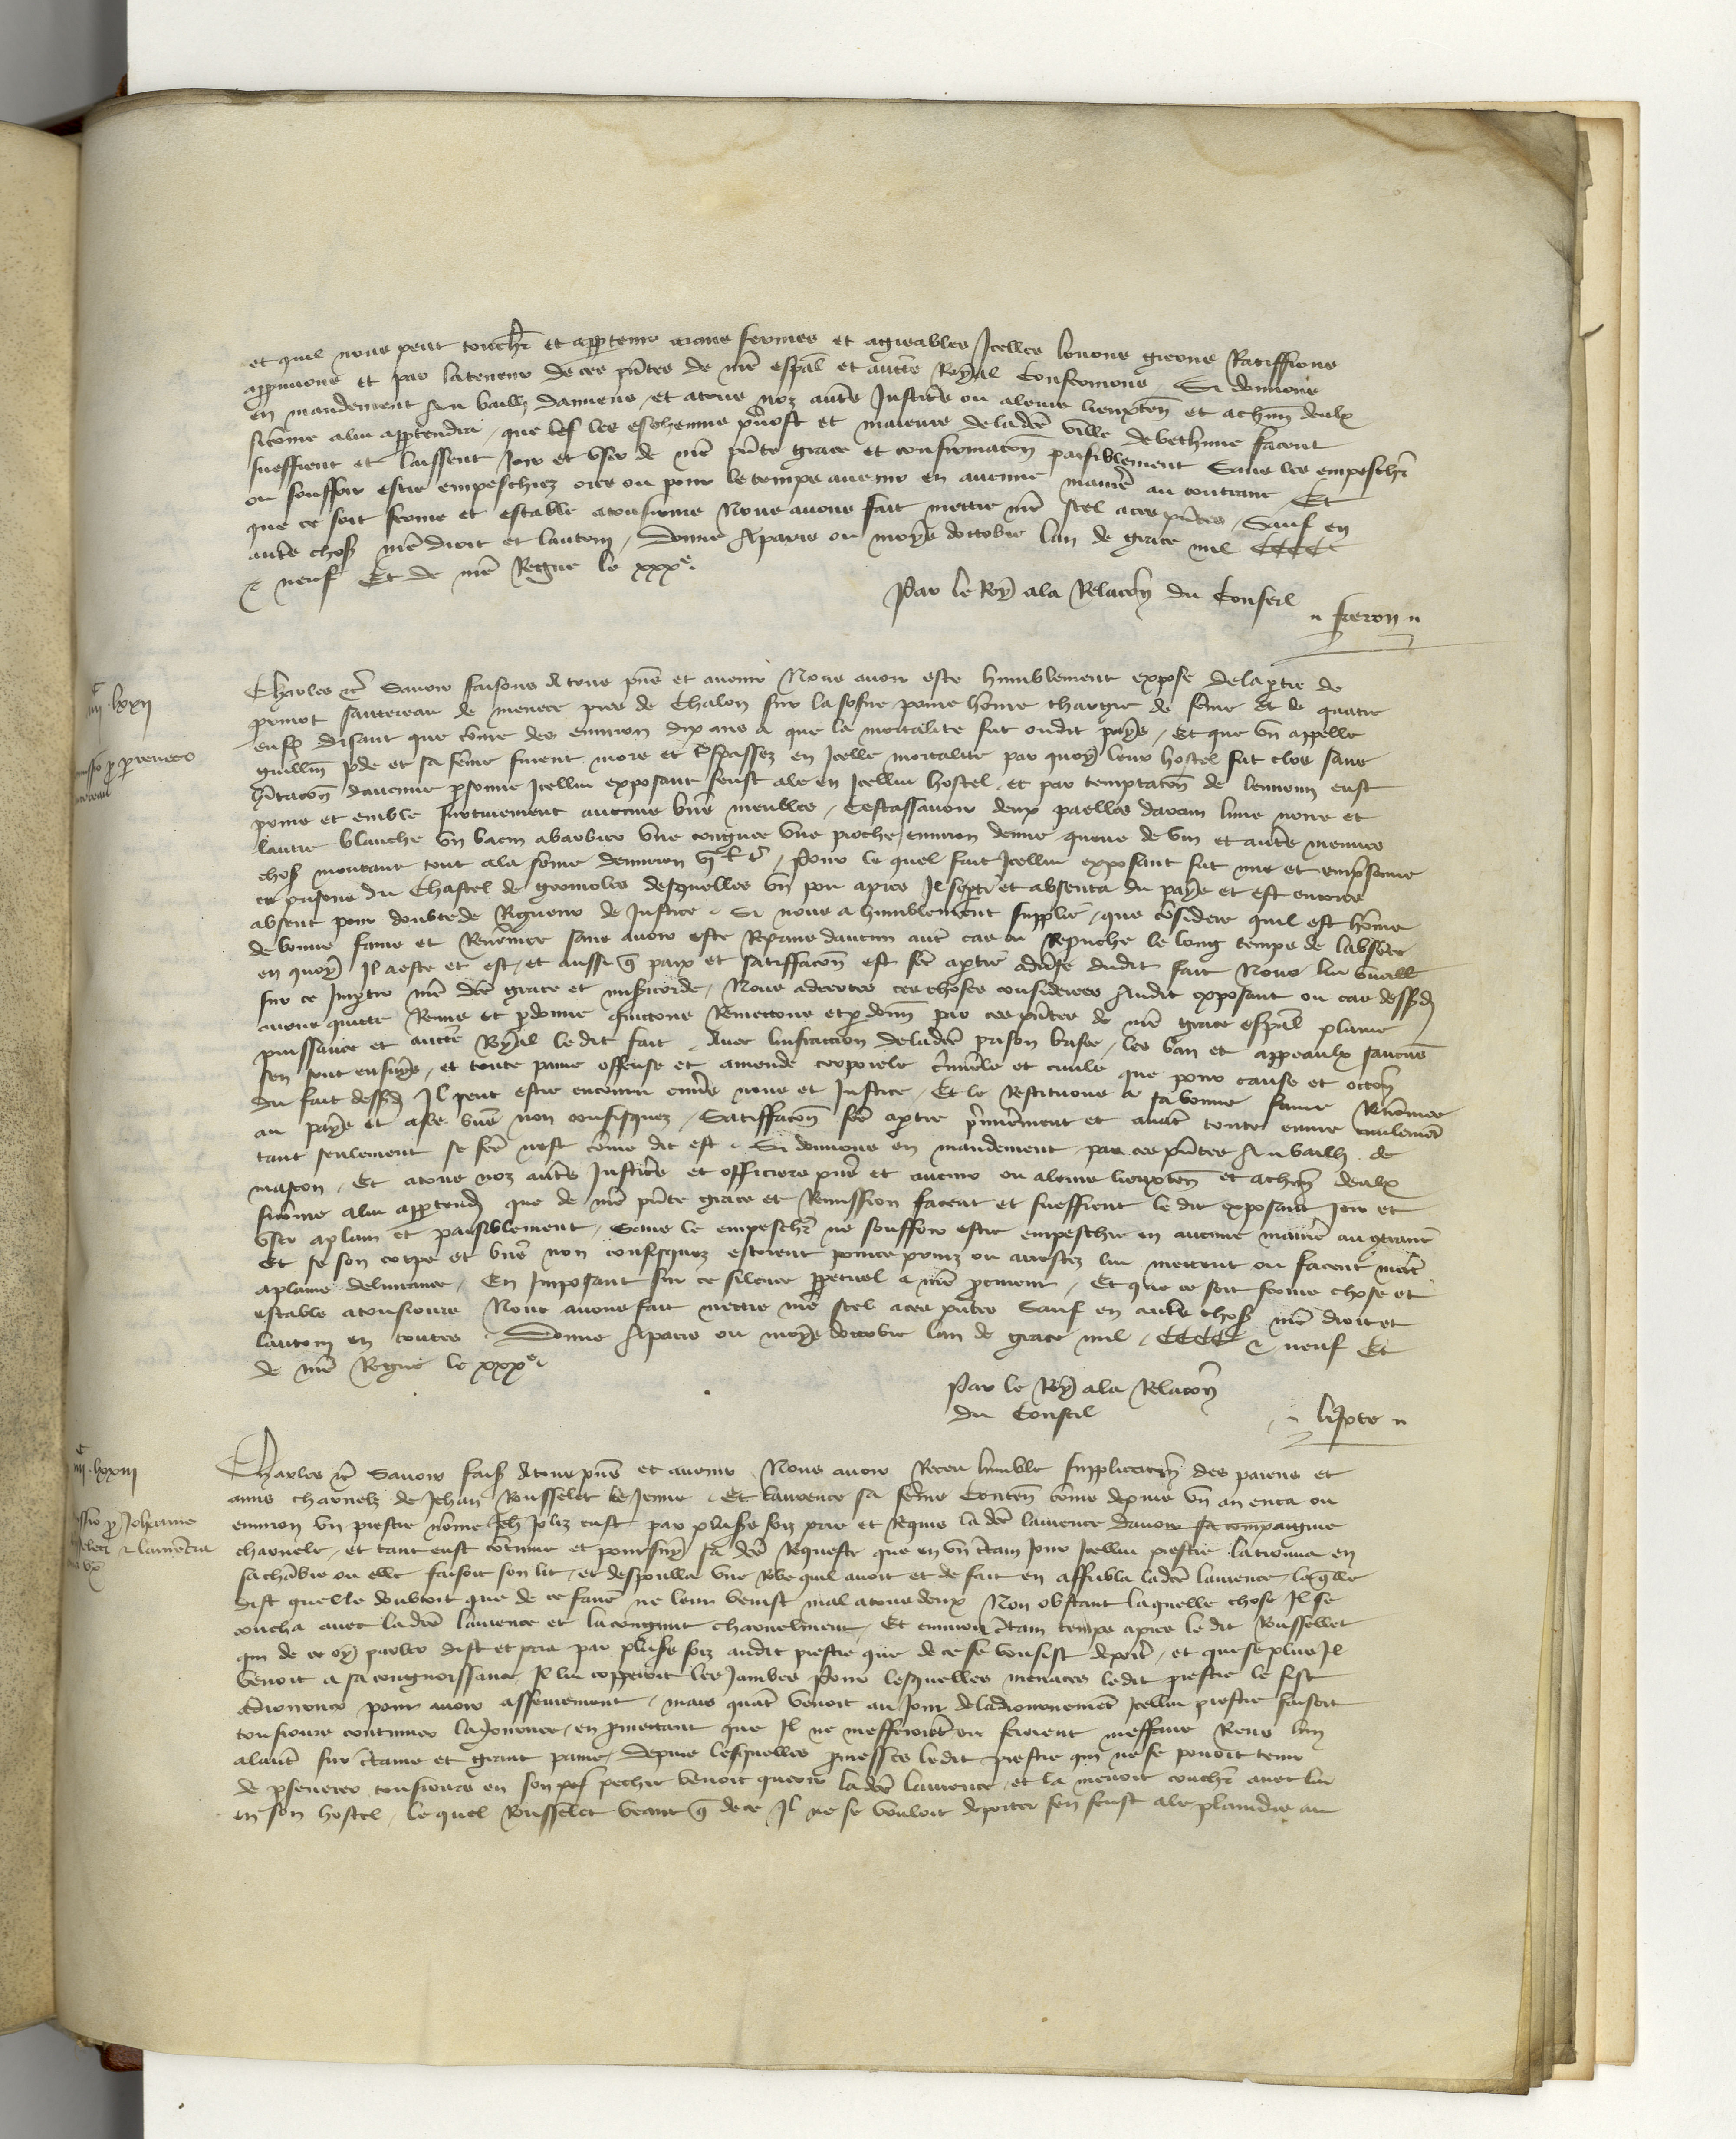 et quil nous peut touchr et appartenir avons fermes et agreables Icelles louons greons Ratiffions
approuvons et par la teneur de ces pntes de nre espal et aucte Royal Confermons Si donnons
en mandement Au bailli damiens et a tous noz autres Justiciers ou a leurs lieuxten et a chun deulx
sicome a lui appartendra que les esthevins prevost et maieurs de ladce ville de bethune facent
sueffrent et laissent Joir et user de nre pnte grace et confirmacon paisiblement Sans les empeschr
ou souffrir estre empeschiez ores ou pour le temps avenir en aucune manre au contraire Et
que ce soit ferme et estable a tousiours Nous avons fait mettre nre scel a ces pntes Sauf en
autres choses nre droit et lautruy Donne A paris ou moys doctobre lan de grace mil CCCC
& neuf Et de nre Regne le xxxe
Par le Roy a la Relacon du Conseil
freron
iiiic lxxii
Charles &c Savoir faisons A tous pns et avenir Nous avoir este humblement expose de la partie de
perrenot sautereau de menere pres de Chalon sur la sosne povre home chargie de feme et de quatre
enfs disant que come des environ dix ans a que la mortalite fut oudit pays Et que un appelle
guillm et sa feme furent mors et trespassez en Icelle mortalite par quoy leur hostel fut clos sans
hitacon daucune psonne Icellui exposant feust ale en Icellui hostel et par temptacon de lennemi eust
prins et emble furtivement aucuns biens meubles Cestassavoir deux paelles darain lune noire et
lautre blanche un bacin a barbier une congnee une pioche environ demie queue de vin et autres menues
choses montant tout a la some denviron Pour le quel fait Icellui exposant fut mis et emprisonne
es prisons du Chastel de desquelles un pou apres Il se parti et absenta du pays et est encores
absent pour doubte de Rigueur de Justice Si nous a humblement supplie que considere quil est home
de bonne fame et Renomee sans avoir este Reprins daucun autre cas ou Reprouche le long temps de labsence
en quoy Il a este et est et aussi q paix et satiffacon est fce a partie adverse dudit fait Nous lui vueillons
sur ce Impartir nre dce grace et misicorde Nous adecertes ces choses considerees Audit exposant ou cas dessusd
avons quitte Remis et pardonne quittons Remettons et pardonn par ces pntes de nre grace espal plaine
puissance et aucte Royal le dit fait Avec linfraction de ladce prison brisee les ban et appeaulx saucuns
sen sont ensuys et toute paine offense et amende corporele criminele et civile que pour cause et occon
du fait dessusd Il peut estre encouru envers nous et Justice Et le Restituons a sa bonne fame Renomee
au pays et a ses biens non confisquez Satiffacon fce a partie prmierement et avat toute euvre civilemet
tant seulement se fce nest come dit est Si donnons en mandement par ces pntes Au bailli de
mascon Et a tous noz autres Justiciers et officiers pns et avenir ou a leurs lieuxten et a chun deulx
sicome a lui appartendra que de nre pnte grace et Remission facent et sueffrent le dit exposant Joir et
user a plain et paisiblement Sans le empeschr ne souffrir estre empeschie en aucune manre au contraire
Et se son corps et biens non confisquez estoient pource prins ou arrestez lui mettent ou facent mect
a plaine delivrance En Imposant sur ce silence ppetuel a nre procureur Et que ce soit ferme chose et
estable a tousiours Nous avons fait mettre nre scel a ces pntes Sauf en autres choses nre droit et
lautruy en toutes Donne A paris ou moys doctobre lan de grace mil CCCC & neuf Et
de nre Regne le xxxe
Par le Roy a la Relacon
du Conseil
iiiic lxxiii
Charles &c Savoir fais A tous pns et avenir Nous avoir Receu lumble supplicacion des parens et
amis charnelz de Jehan Rousselet le Jenne Et laurence sa feme Conten come depuis un an enca ou
environ un prestre nome Jeh eust par pluss foiz prie et Requis la dce laurence davoir sa compaignie
charnele et tant eust continue et poursuy sa dce Requeste que en un ctain Jour Icellui prestre la trouva en
sa chabre ou elle faisoit son lit et despoulla une Robe quil avoit et de fait en affubla ladce laurence laqlle
dist quelle doubtoit que de ce faire ne leur venist mal a tous deux Non obstant laquelle chose Il se
coucha avec ladce laurence et la congnut charnelment Et environ ctain temps apres le dit Rousselet
qui de ce oy parler dist et pria par pluss foiz audit prestre que de ce se voulsist deporter et que se plus Il
venoit a sa congnoissance Il lui copperoit les Jambes Pour lesquelles menaces ledit prestre le fist
adiourner pour avoir asseurement mais quat venoit au Jour de ladiournement Icellui prestre faisoit
tousiours continuer la Journee en pmettant que Il ne ne feroient meffaire Riens lun
a lautre sur ctaine et grant paine Depuis lesquelles pmesses ledit prestre qui ne se povoit tenir
de pseverer tousiours en son pechie venoit querir ladce laurence et la menoit couchr avec lui
en son hostel le quel Rousselet veant q de ce Il ne se vouloit deporter sen feust ale plaindre au